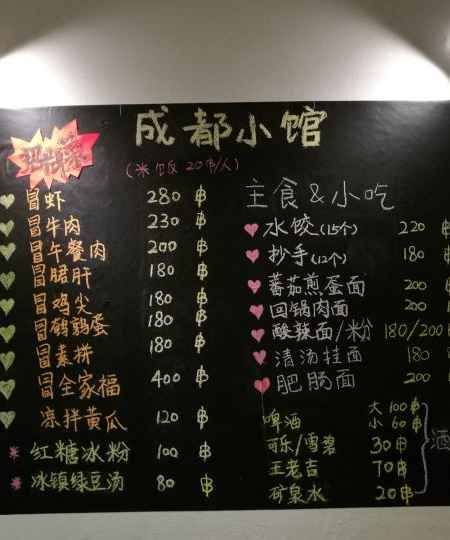 成都小馆
(米饭20฿/人)
冒虾 280 ฿
冒牛肉 230 ฿
冒午餐肉 200 ฿
冒腒肝 180 ฿
冒鸡尖 180 ฿
冒鹌鹑蛋 180 ฿
冒素拼 180 ฿
冒全家福 400 ฿
凉拌黄瓜 120 ฿
红糖冰粉 100 ฿
冰镇绿豆汤 80 ฿
主食&小吃
水饺(15个) 220 ฿
抄手(12个) 180
番茄煎蛋面 200
回锅肉面 200
酸辣面/粉 180/200฿
清汤挂面 180
肥肠面 200
啤酒 大 100฿
小 60฿
可乐/雪碧 30฿
王老吉 70฿
矿泉水 20฿
酒